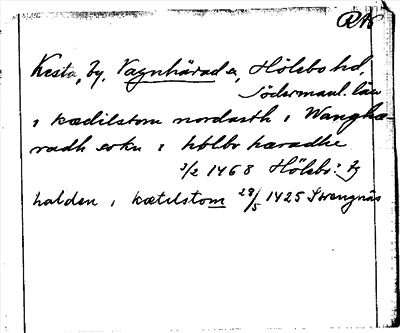 RAÖ
Kesta, by, Vagnhärad sn, Hölebo hd,
Södermanl. län
i kædilstom nordarth i Wanghæ-
radh sokn i hölbo haradhe
3/2 1468 Hölebo:
halden i kætilstom 28/5 1425 Strengnäs